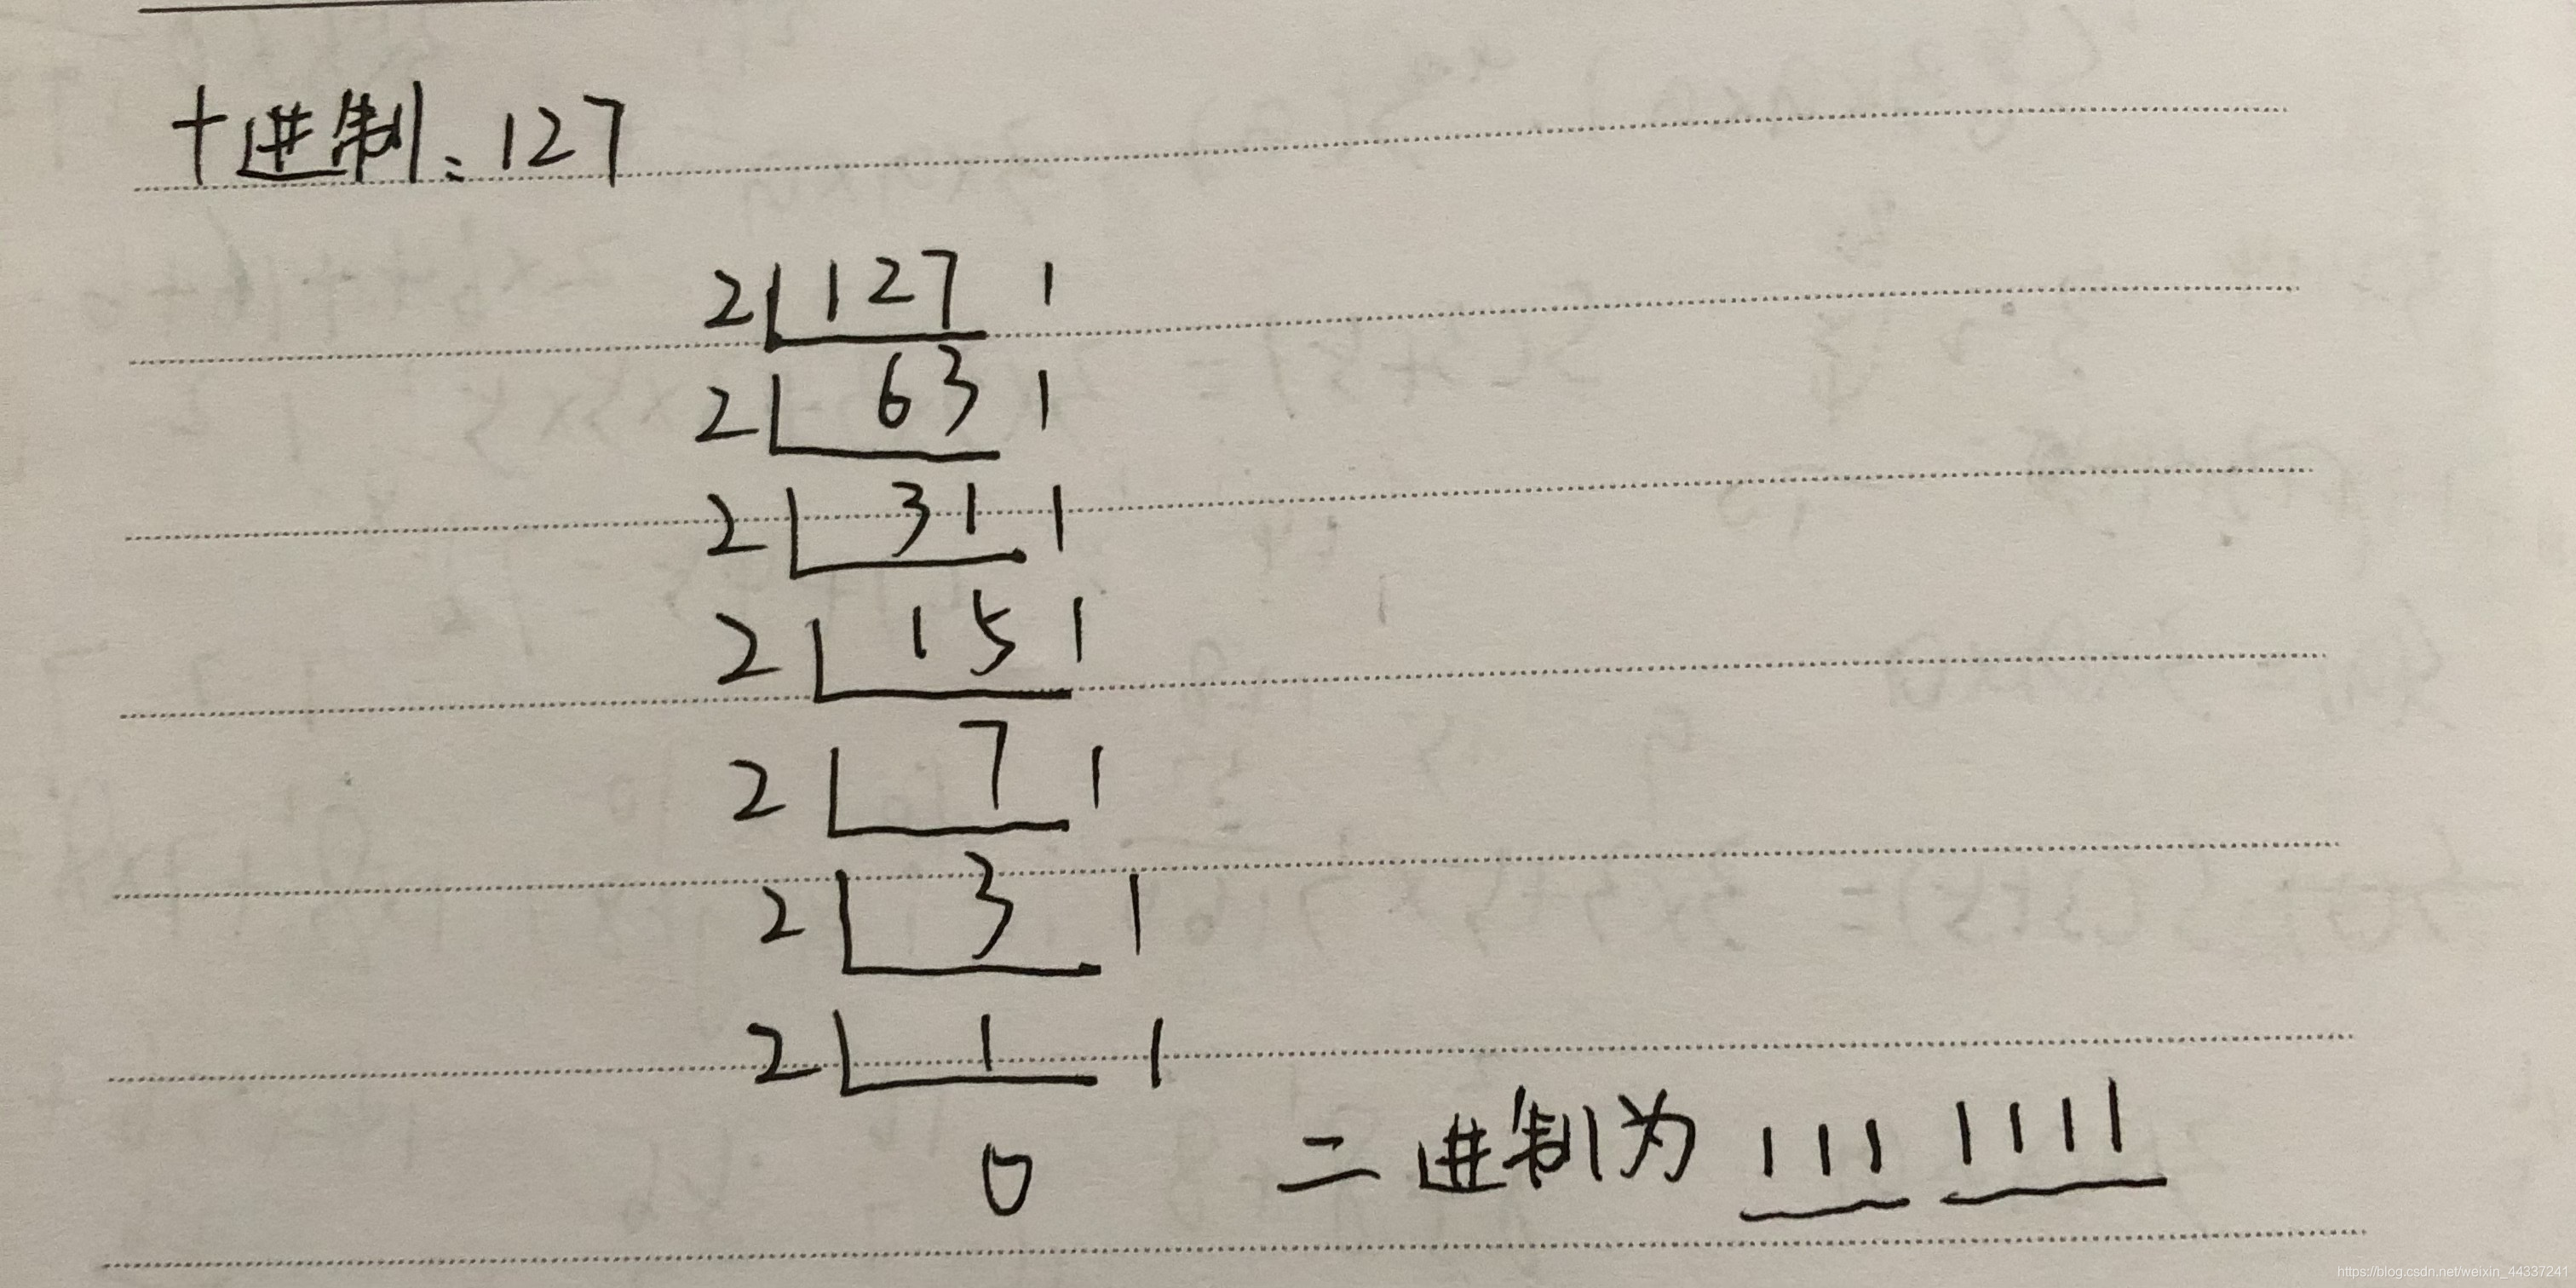 十进制：127
2 127 1
2 63 1
2 31 1
2 15 1
2 7 1
2 3 1
2 1 1
0 二进制为 111 1111
https://blog.csdn.net/weixin_44337241